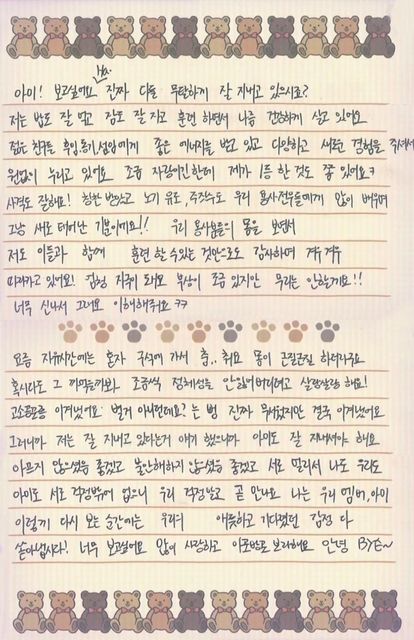 아이! 보고싶어요 진짜 다들 무탈하게 잘 지내고 있으시죠?
저는 밥도 잘 먹고 잠도 잘 자고 훈련 하면서 나름 건강하게 살고 있어요
젊은 친구들 후임 동기 선임에게 좋은 에너지를 받고 있고 다양하고 새로운 경험을 주셔서
원없이 누리고 있어요 조금 자랑이긴한데 제가 1등 한 것도 쫌 있어요ㅋ
사격도 잘해요! 칭찬 받았고 노기 유도, 주짓수도 우리 용사전우들에게 많이 배우며
그냥 새로 태어난 기분이에요!! 우리 용사분들의 몸을 보면서
저도 이들과 함께 훈련 할 수 있는 것만으로도 감사하며 겨우겨우
따라가고 있어요! 컴컴 지죽이 도래요 부상이 조금 있지만 무리는 안할게요!!
너무 신나서 그러요 이해해줘요 ㅋㅋ
요즘 자유시간에는 혼자 구석에 가서 춤.. 춰요 몸이 근질근질 하더라구요
혹시라도 그 까먹을까봐 조금씩 정체성을 안잃어버리려고 살랑살랑 해요!
고소공포증 이겨냈어요 별거 아니던데요? 는 뻥 진짜 무서웠지만 결국 이겨냈어요
그러니까 저는 잘 지내고 있다는거 얘기 했으니까 아이도 잘 지내셔야 해요
아프지 않으셨음 좋겠고 불안해하지 않으셨음 좋겠고 서로 멀리서 나도 우리도
아이도 서로 걱정밖에 없으니 우리 걱정말고 곧 만나요 나는 우리 멤버, 아이
이렇게 다시 보는 순간에는 우리의 애틋하고 기다렸던 감정 다
쏟아냅시다! 너무 보고싶어요 많이 사랑하고 이만 보러해요 안녕 BYE~